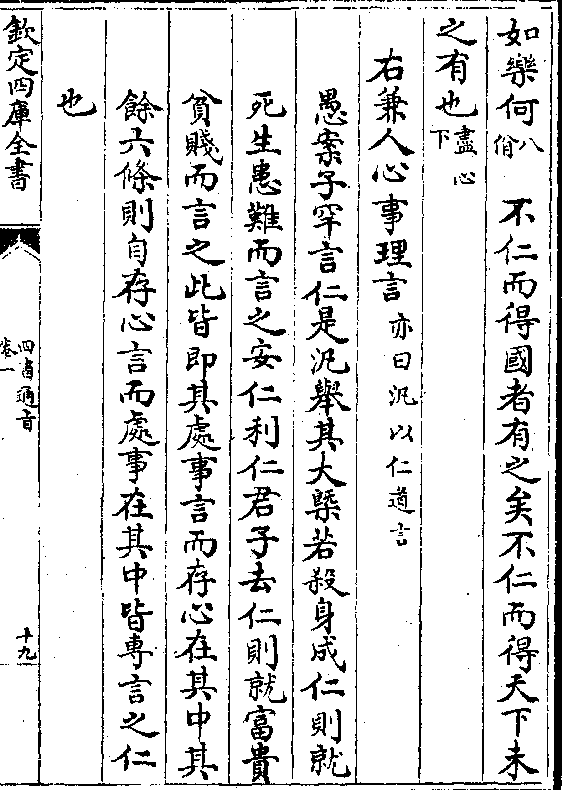 如樂何八佾　不仁而得國者有之矣不仁而得天下未
之有也盡心下
右兼人心事理言亦曰汎以仁道言
愚案子罕言仁是汎舉其大槩若殺身成仁則就
死生患難而言之安仁利仁君子去仁則就富貴
貧賤而言之此皆即其處事言而存心在其中其
餘六條則自存心言而處事在其中皆專言之仁
也
欽定四庫全書
四書通旨
卷一
十九